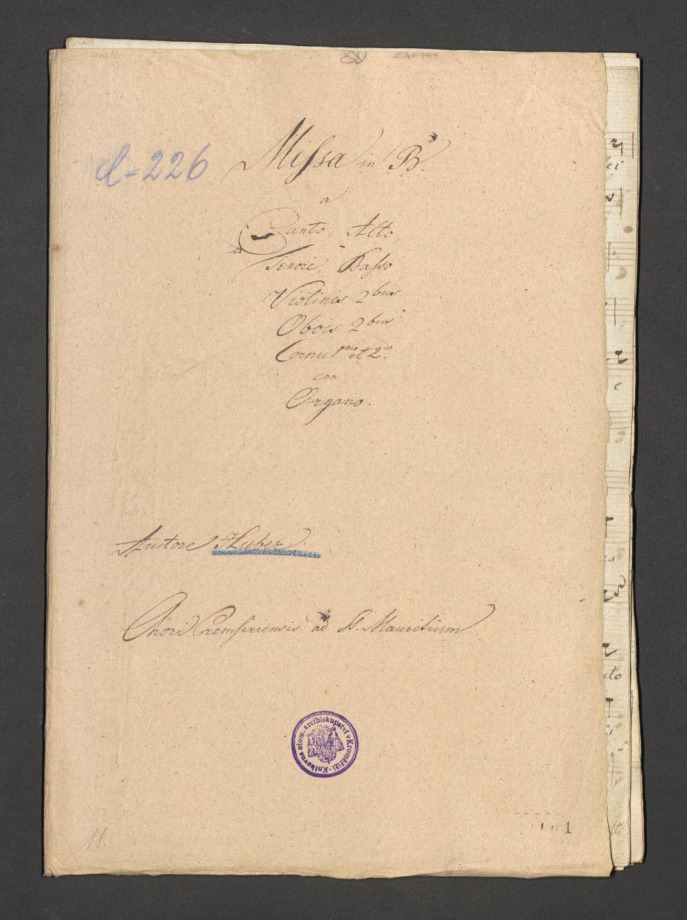 d-226
Missa in B.
a
Canto, Alto,
Tenore, Basso
Violinis 2bus
Obois 2bus
Cornu 1mo et 2do
con
Organo.
Autore Huber.
Chori Cremsiriensis ad St. Mauritium
Knihovna olom. arcibiskupství v Kroměříži
1
11.